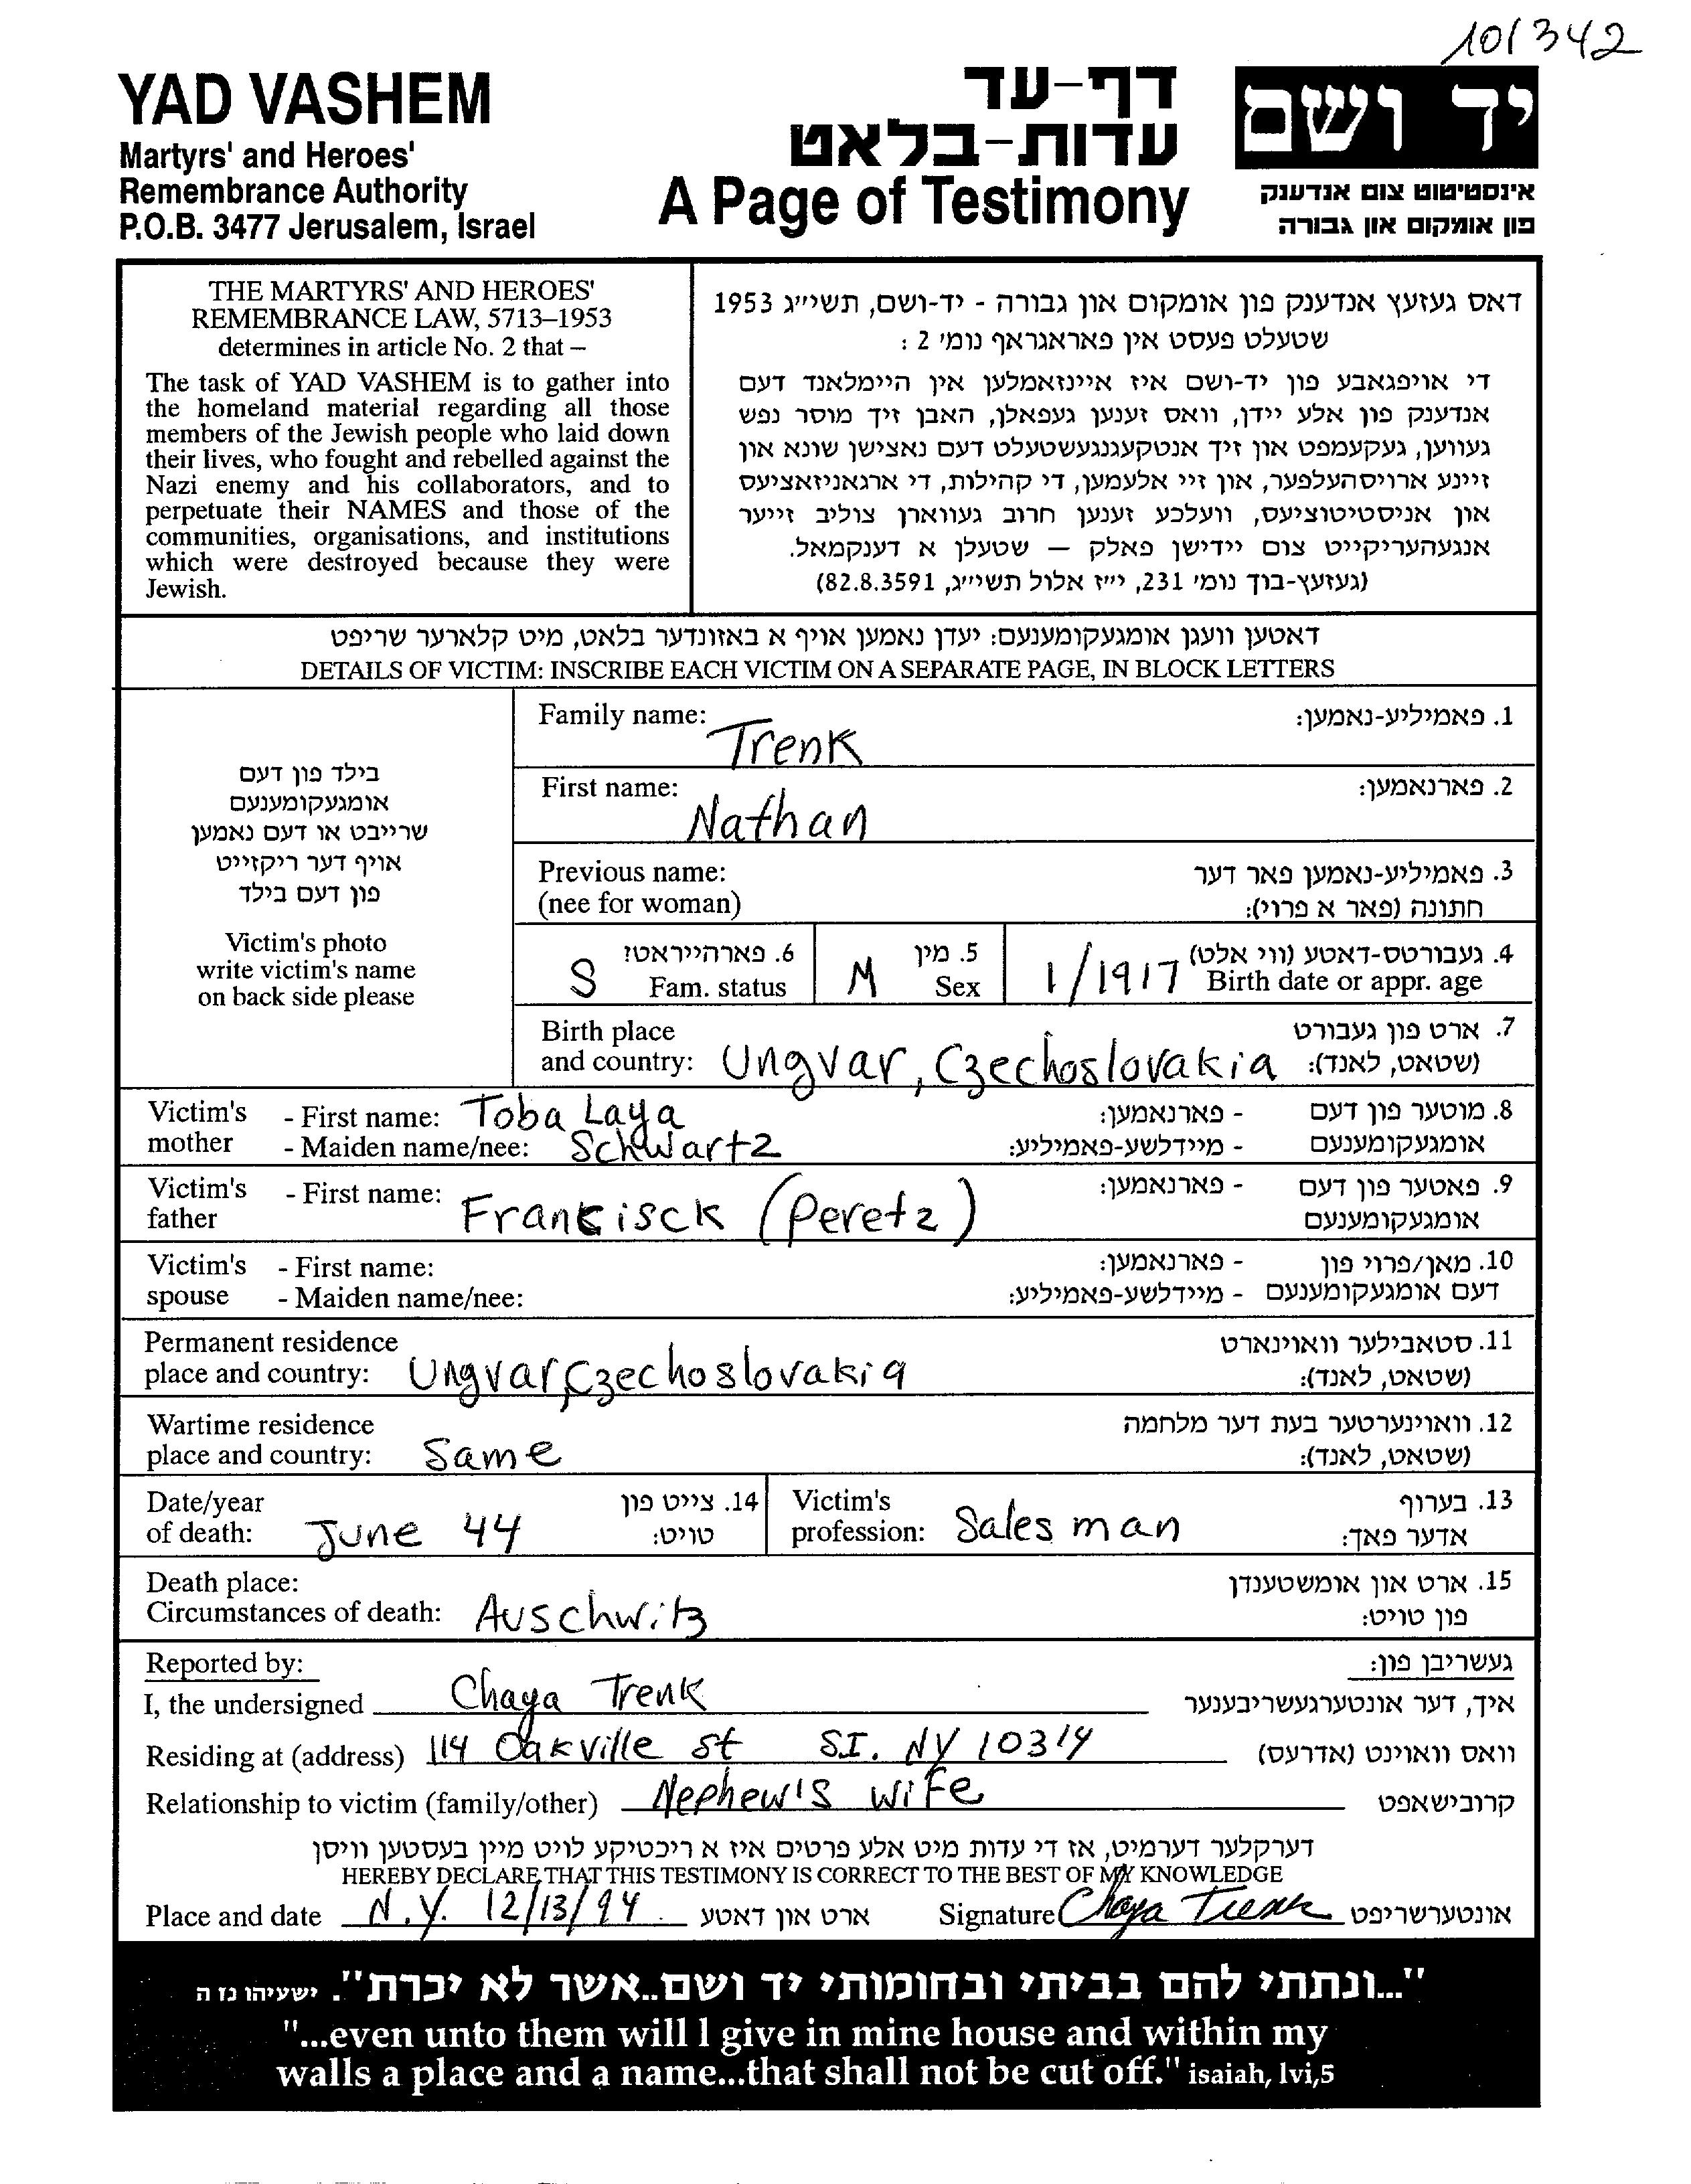 101342
YAD VASHEM
Martyrs' and Heroes'
Remembrance Authority
P.O.B. 3477 Jerusalem, Israel
דף-עד
עדות-בלאט
A Page of Testimony
יד ושם
אינסטיטוט צום אנדענק
פון אומקום און גבורה
THE MARTYRS' AND HEROES'
REMEMBRANCE LAW, 5713–1953
determines in article No. 2 that –
The task of YAD VASHEM is to gather into
the homeland material regarding all those
members of the Jewish people who laid down
their lives, who fought and rebelled against the
Nazi enemy and his collaborators, and to
perpetuate their NAMES and those of the
communities, organisations, and institutions
which were destroyed because they were
Jewish.
דאס געזעץ אנדענק פון אומקום און גבורה - יד-ושם, תשי״ג 1953
שטעלט פעסט אין פאראגראף נומ' 2 :
די אויפגאבע פון יד-ושם איז איינזאמלען אין היימלאנד דעם
אנדענק פון אלע יידן, וואס זענען געפאלן, האבן זיך מוסר נפש
געווען, געקעמפט און זיך אנטקעגנגעשטעלט דעם נאצישן שונא און
זיינע ארויסהעלפער, און זיי אלעמען, די קהילות, די ארגאניזאציעס
און אניסטיטוציעס, וועלכע זענען חרוב געווארן צוליב זייער
אנגעהעריקייט צום יידישן פאלק — שטעלן א דענקמאל.
(געזעץ-בוך נומ' 231, י״ז אלול תשי״ג, 82.8.3591)
דאטען וועגן אומגעקומענעם: יעדן נאמען אויף א באזונדער בלאט, מיט קלארער שריפט
DETAILS OF VICTIM: INSCRIBE EACH VICTIM ON A SEPARATE PAGE, IN BLOCK LETTERS
בילד פון דעם
אומגעקומענעם
שרייבט או דעם נאמען
אויף דער ריקזייט
פון דעם בילד
Victim's photo
write victim's name
on back side please
Family name: Trenk 1. פאמיליע-נאמען:
First name: Nathan 2. פארנאמען:
Previous name: 3. פאמיליע-נאמען פאר דער
(nee for woman) חתונה (פאר א פרוי):
S 6. פארהייראט? M 5. מין 1/1917 4. געבורטס-דאטע (ווי אלט)
Fam. status Sex Birth date or appr. age
Birth place 7. ארט פון געבורט
and country: Ungvar, Czechoslovakia (שטאט, לאנד):
Victim's - First name: Toba Laya - פארנאמען: 8. מוטער פון דעם
mother - Maiden name/nee: Schwartz - מיידלשע-פאמיליע: אומגעקומענעם
Victim's - First name: Francisck (Peretz) - פארנאמען: 9. פאטער פון דעם
father אומגעקומענעם
Victim's - First name: - פארנאמען: 10. מאן/פרוי פון
spouse - Maiden name/nee: - מיידלשע-פאמיליע: דעם אומגעקומענעם
Permanent residence 11. סטאבילער וואוינארט
place and country: Ungvar, Czechoslovakia (שטאט, לאנד):
Wartime residence 12. וואוינערטער בעת דער מלחמה
place and country: Same (שטאט, לאנד):
Date/year 14. צייט פון Victim's 13. בערוף
of death: June 44 טויט: profession: Sales man אדער פאך:
Death place: 15. ארט און אומשטענדן
Circumstances of death: Auschwitz פון טויט:
Reported by: געשריבן פון:
I, the undersigned Chaya Trenk איך, דער אונטערגעשריבענער
Residing at (address) 114 Oakville st S.I. NY 10314 וואס וואוינט (אדרעס)
Relationship to victim (family/other) Nephew's wife קרובישאפט
דערקלער דערמיט, אז די עדות מיט אלע פרטים איז א ריכטיקע לויט מיין בעסטען וויסן
HEREBY DECLARE THAT THIS TESTIMONY IS CORRECT TO THE BEST OF MY KNOWLEDGE
Place and date N.Y. 12/13/94 ארט און דאטע Signature Chaya Trenk אונטערשריפט
"...ונתתי להם בביתי ובחומותי יד ושם..אשר לא יכרת". ישעיהו נז ה
"...even unto them will I give in mine house and within my
walls a place and a name...that shall not be cut off." isaiah, lvi,5